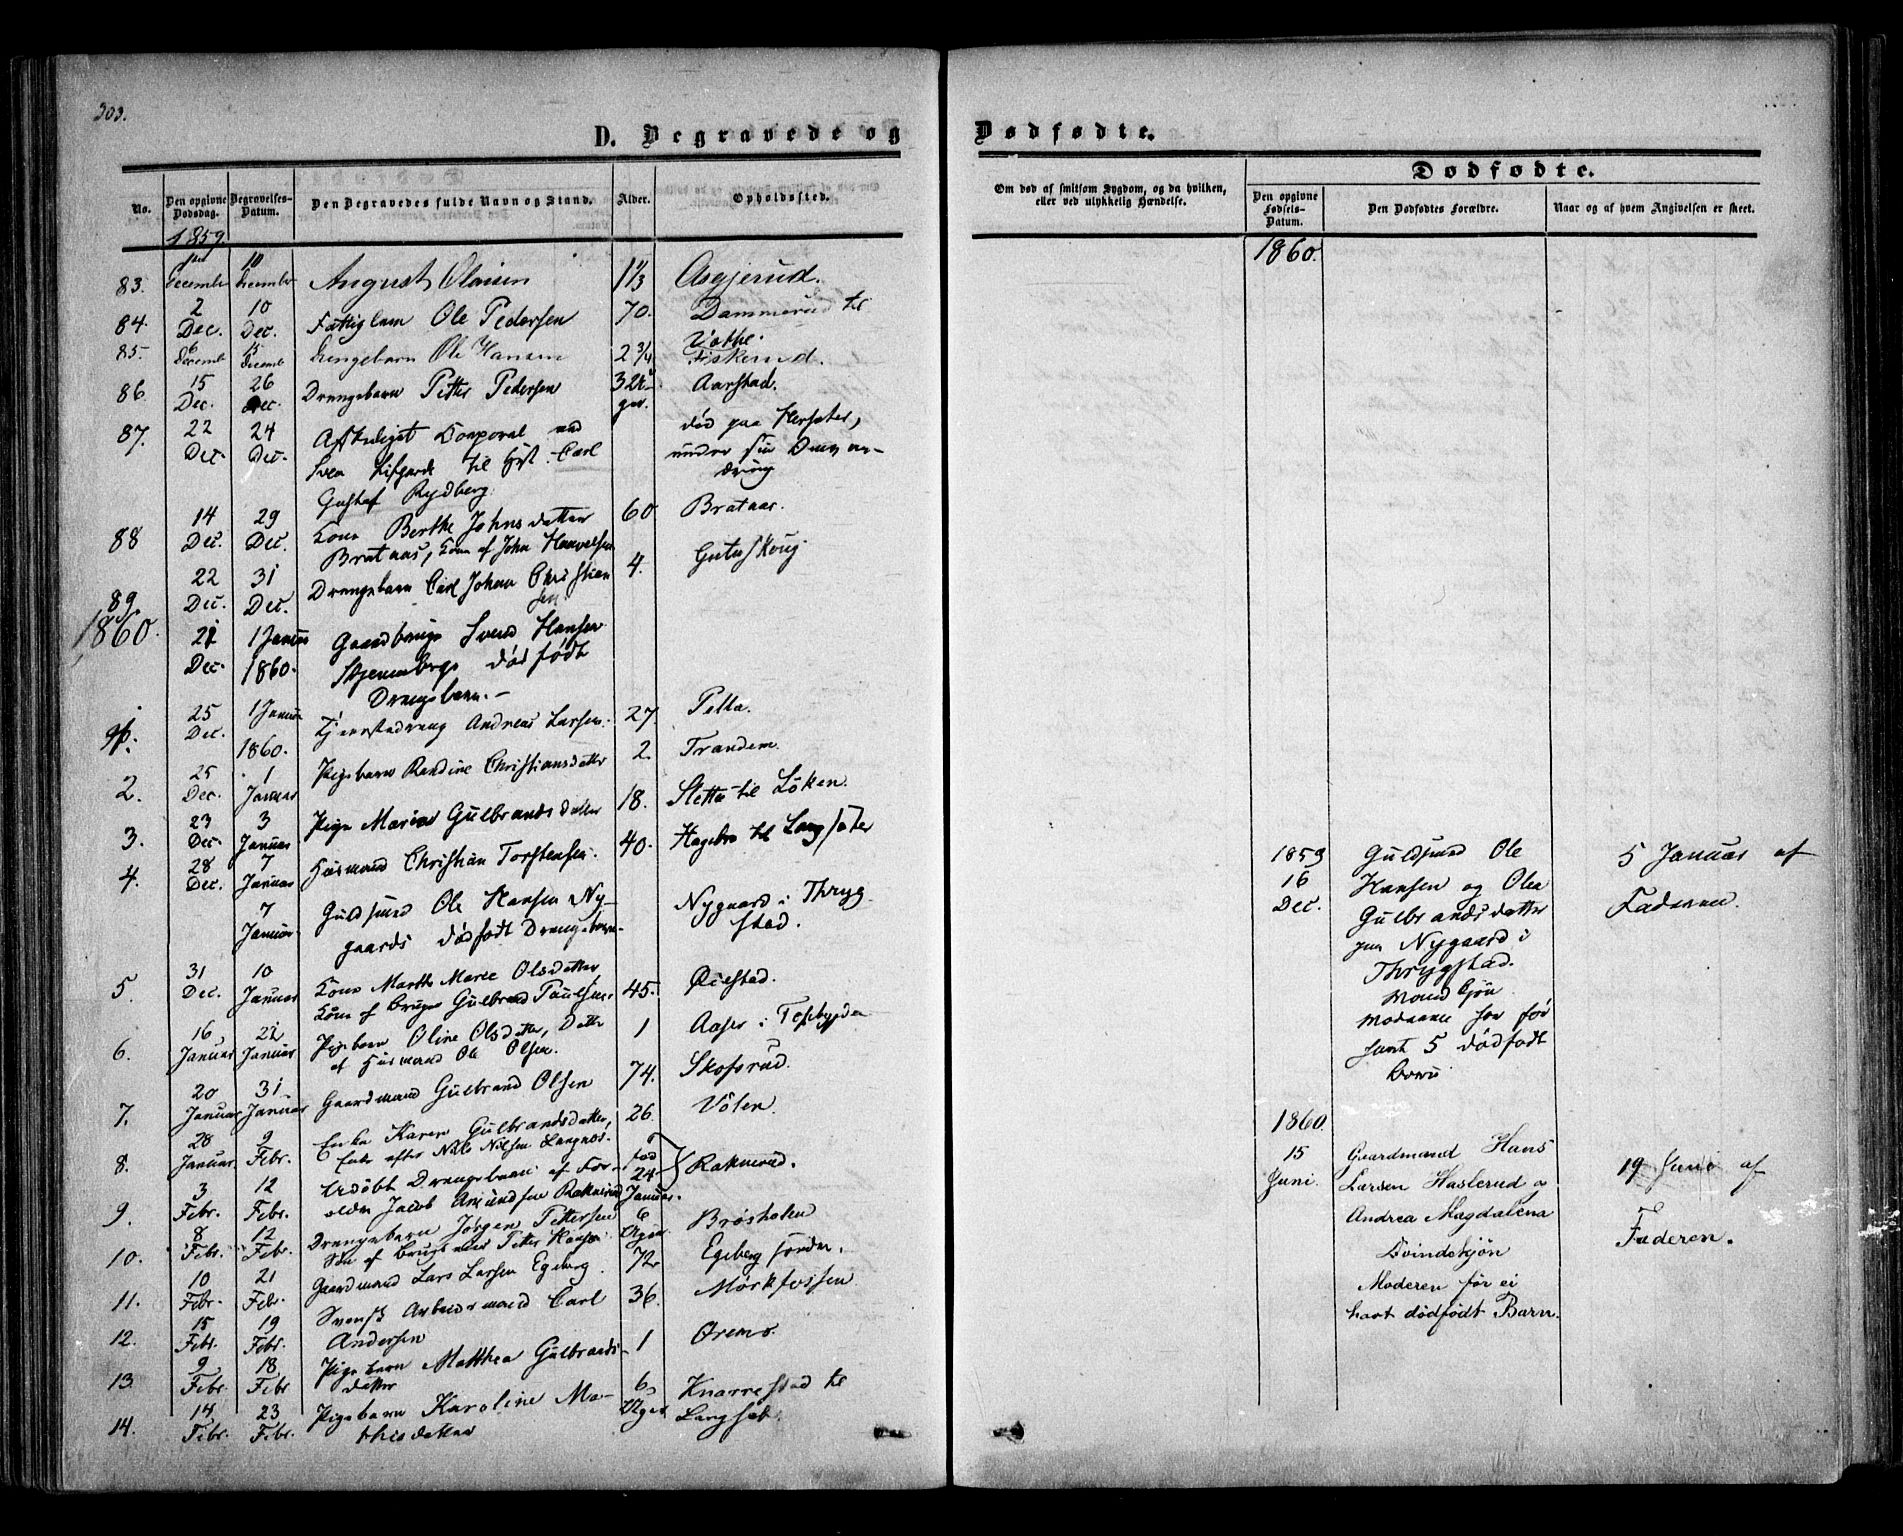 303.
D. Begravede og
No.
Den opgivne Dødsdag.
Begravelses-Datum.
Den Begravedes fulde Navn og Stand.
Alder.
Opholdssted.
1859.
83. December 10 December August Olaisen 1 1/3 Asgjerud.
84. 2 Dec. 10 Dec. Fattiglem Ole Pedersen 70. Dammerud til
85. 6 Decemb 15 Decemb Drengebarn Ole Hansen 2 3/4 Fiskerud.
86. 15 Dec. 26 Dec. Drengebarn Petter Pedersen Aarstad.
87. 22 Dec. 24 Dec. Afskediget Corporal ved død paa Hersæter,
Svea Lifgarde til Carl under sin
Gustaf Rydberg.
88 14 Dec. 29 Dec. Kone Berthe Johnsdatter 60 Brataas.
Brataas, Kone af John Haavelsen
89 22 Dec. 31 Dec. Drengebarn Carl Johan Christian 4. Gutuskoug
sen
1860. 21 Dec. 1 Januar 1860. Gaardbruger Svend Hansen
Skjennbergs dødfødt
Drengebarn.
25 Dec. 1 Januar 1860. Tjenestedreng Andreas Larsen. 27. Petta.
2. 25 Dec. 1 Januar Pigebarn Randine Christiansdatter 2. Trandem.
3. 23 Dec. 3 Januar Pige Maria Gulbrandsdatter 18. Sletta til Löken.
4. 28 Dec. 7 Januar Huusmand Christian Torstensen. 40. Hagebro til Langsæter
7 Januar Guldsmed Ole Hansen Ny- Nygaard i Thryg
gaards dødfødt Drengebarn. stad.
5. 31 Dec. 10 Januar Kone Marthe Marie Olsdatter, 45. Øiestad.
Kone af Bruger Gulbrand Paulsen.
6. 16 Januar 22 Januar Pigebarn Oline Olsdatter, Datter 1 Aaser i
af Huusmand Ole Olsen.
7. 20 Januar 31 Januar Gaardmand Gulbrand Olsen 74. Skofsrud.
8. 28 Januar 9 Febr. Enke Karen Gulbrandsdatter, 26. Völen.
Enke efter Nils Nilsen Langnæs.
9. 3 Febr. 12 Febr. Udøbt Drengebarn af For- fød 24 Januar. Raknerud.
ældre Jacob Amundsen Raknerud
10. 8 Febr. 12 Febr. Drengebarn Jørgen Pettersen 6 Uger Brøsholen
Søn af Petter Hansen.
11. 10 Febr. 21 Febr. Gaardmand Lars Larsen Egeberg. 72 Egeberg søndre.
12. 15 Febr. 19 Febr. Svensk Arbeidsmand Carl 36. Mörkfossen
Andersen
13. 9 Febr. 18 Febr Pigebarn Matthea Gulbrands- 1 Øremo.
datter
14. 14 Febr. 23 Febr. Pigebarn Karoline Ma- 6 Uger Knarrestad til
thisdatter Langsæt.
Dødfødte.
Om død af smitsom Sygdom, og da hvilken,
eller ved ulykkelig Hændelse.
Dødfødte.
Den opgivne Fødsels-Datum.
Den Dødfødtes Forældre.
Naar og af hvem Angivelsen er skeet.
1860.
1859 Guldsmed Ole 5 Januar af
16 Hansen og Olea Faderen.
Dec. Gulbrandsdatter
paa Nygaard i
Thrygstad.
Mandkjøn
Moderen har før
født 5 dødfødt
Børn
1860.
15 Gaardmand Hans 19 Juni af
Juni. Larsen Haslerud og
Andrea Magdalena Faderen.
Kvindekjøn
Moderen før ei
havt dødfødt Barn.